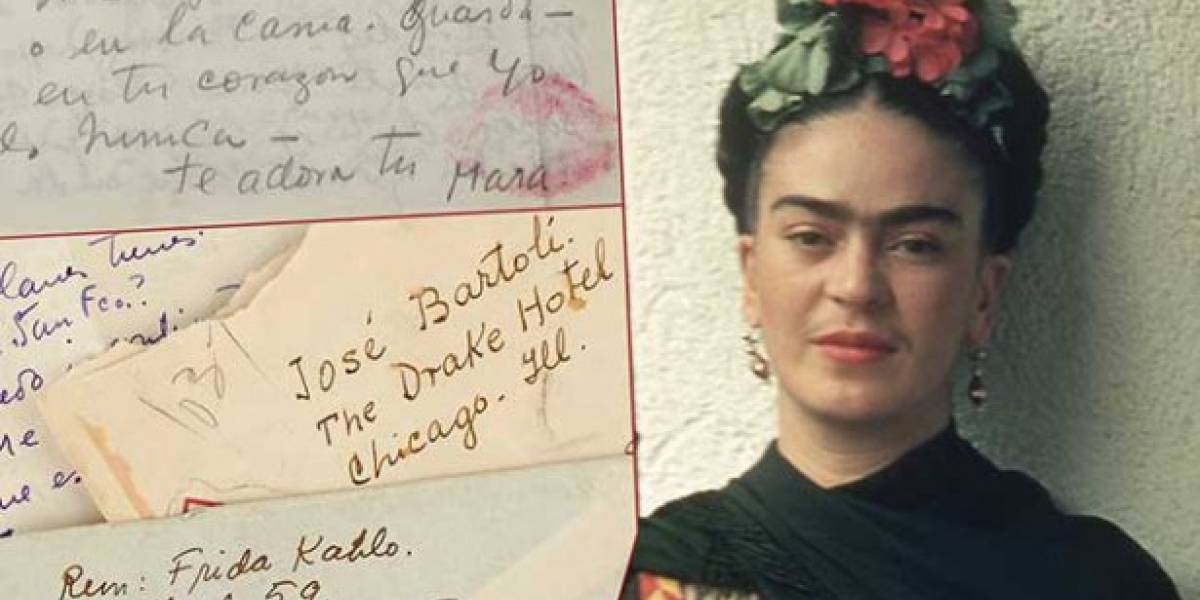 o en la cama. Guarda—
en tu corazon que yo
nunca —
te adora tu Mara.
tienes.
San Fco.?
José Bartolí.
The Drake Hotel
Chicago. Ill.
Rem: Frida Kahlo.
59